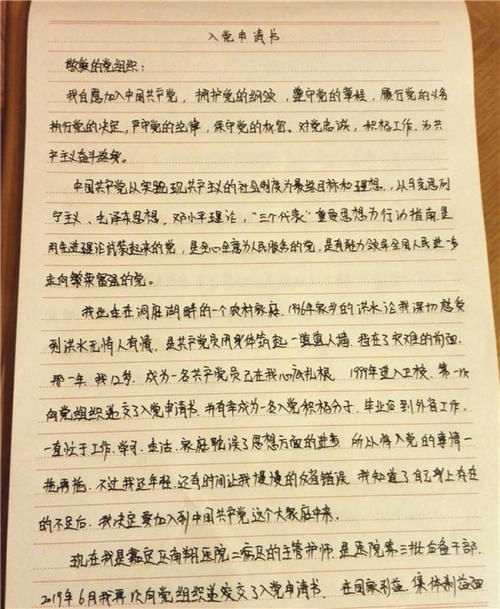 入党申请书
敬爱的党组织:
我自愿加入中国共产党,拥护党的纲领,遵守党的章程,履行党的义务
执行党的决定,严守党的纪律,保守党的秘密。对党忠诚,积极工作.为共
产主义奋斗终身。
中国共产党以实现共产主义的社会制度为最终目标和理想,以马克思列
宁主义、毛泽东思想、邓小平理论,“三个代表”重要思想为行动指南.是
用先进理论武装起来的党,是全心全意为人民服务的党,是有能力领导全国人民进一步
走向繁荣富强的党。
我出生在洞庭湖畔的一个农村家庭.1996年家乡的洪水让我深切感受
到洪水无情人有情,是共产党员用身体筑起一道道人墙.挡在了灾难的前面.
那一年.我12岁.成为一名共产党员已在我心底扎根.1999年进入卫校.第一次
向党组织递交了入党申请书.并有幸成为一名入党积极分子.毕业后到外省工作,
一直忙于工作.学习.生活.家庭耽误了思想方面的进步.所以将入党的事情一
拖再拖.不过我还年轻.还有时间让我慢慢的改督错误.我知道了自己身上存在
的不足后.我决定要加入到中国共产党这个大家庭中来.
现在我是嘉定区南翔医院二病区的主管护师.是医院第三批后备干部.
2019年6月我再次向党组织递交了入党申请书.在国家利益 集体利益面